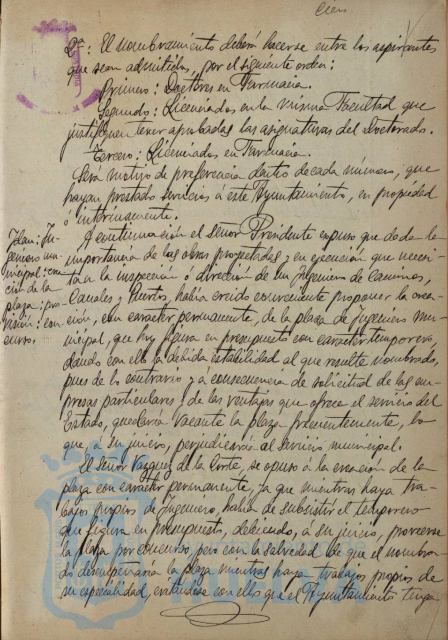 Cien
2ª: El nombramiento deberá hacerse entre los aspirantes
que sean admitidos, por el siguiente orden:
Primero: Doctores en Farmacia.
Segundo: Licenciados en la misma Facultad que
justifiquen tener aprobadas las asignaturas del Doctorado.
Tercero: Licenciados en Farmacia.
Será motivo de preferencia dentro de cada número, que
hayan prestado servicios á este Ayuntamiento, en propiedad
ó interinamente.
A continuación el señor Presidente expuso que dada la
importancia de las obras proyectadas y en ejecución que necesi-
tan la inspección ó dirección de un Ingeniero de Caminos,
Canales y Puertos, había creido conveniente proponer la crea-
ción, con carácter permanente, de la plaza de Ingeniero mu-
nicipal, que hoy figura en presupuesto con carácter temporero,
dando con ello la debida estabilidad al que resulte nombrado,
pues de lo contrario y á consecuencia de solicitud de las em-
presas particulares y de las ventajas que ofrece el servicio del
Estado, quedaría vacante la plaza frecuentemente, lo
que, á su juicio, perjudicaría al servicio municipal.
El señor Vazquez de la Corte, se opuso á la creación de la
plaza con carácter permanente, ya que mientras haya tra-
bajos propios de Ingeniero, había de subsistir el temporero
que figura en presupuesto, debiendo, á su juicio, proveerse
la plaza por concurso, pero con la salvedad de que el nombra-
do desempeñaría la plaza mientras haya trabajos propios de
su especialidad, evitándose con ello que el Ayuntamiento tenga
Idem: In-
geniero mu-
nicipal: crea-
ción de la
plaza: pro-
visión: con-
curso.